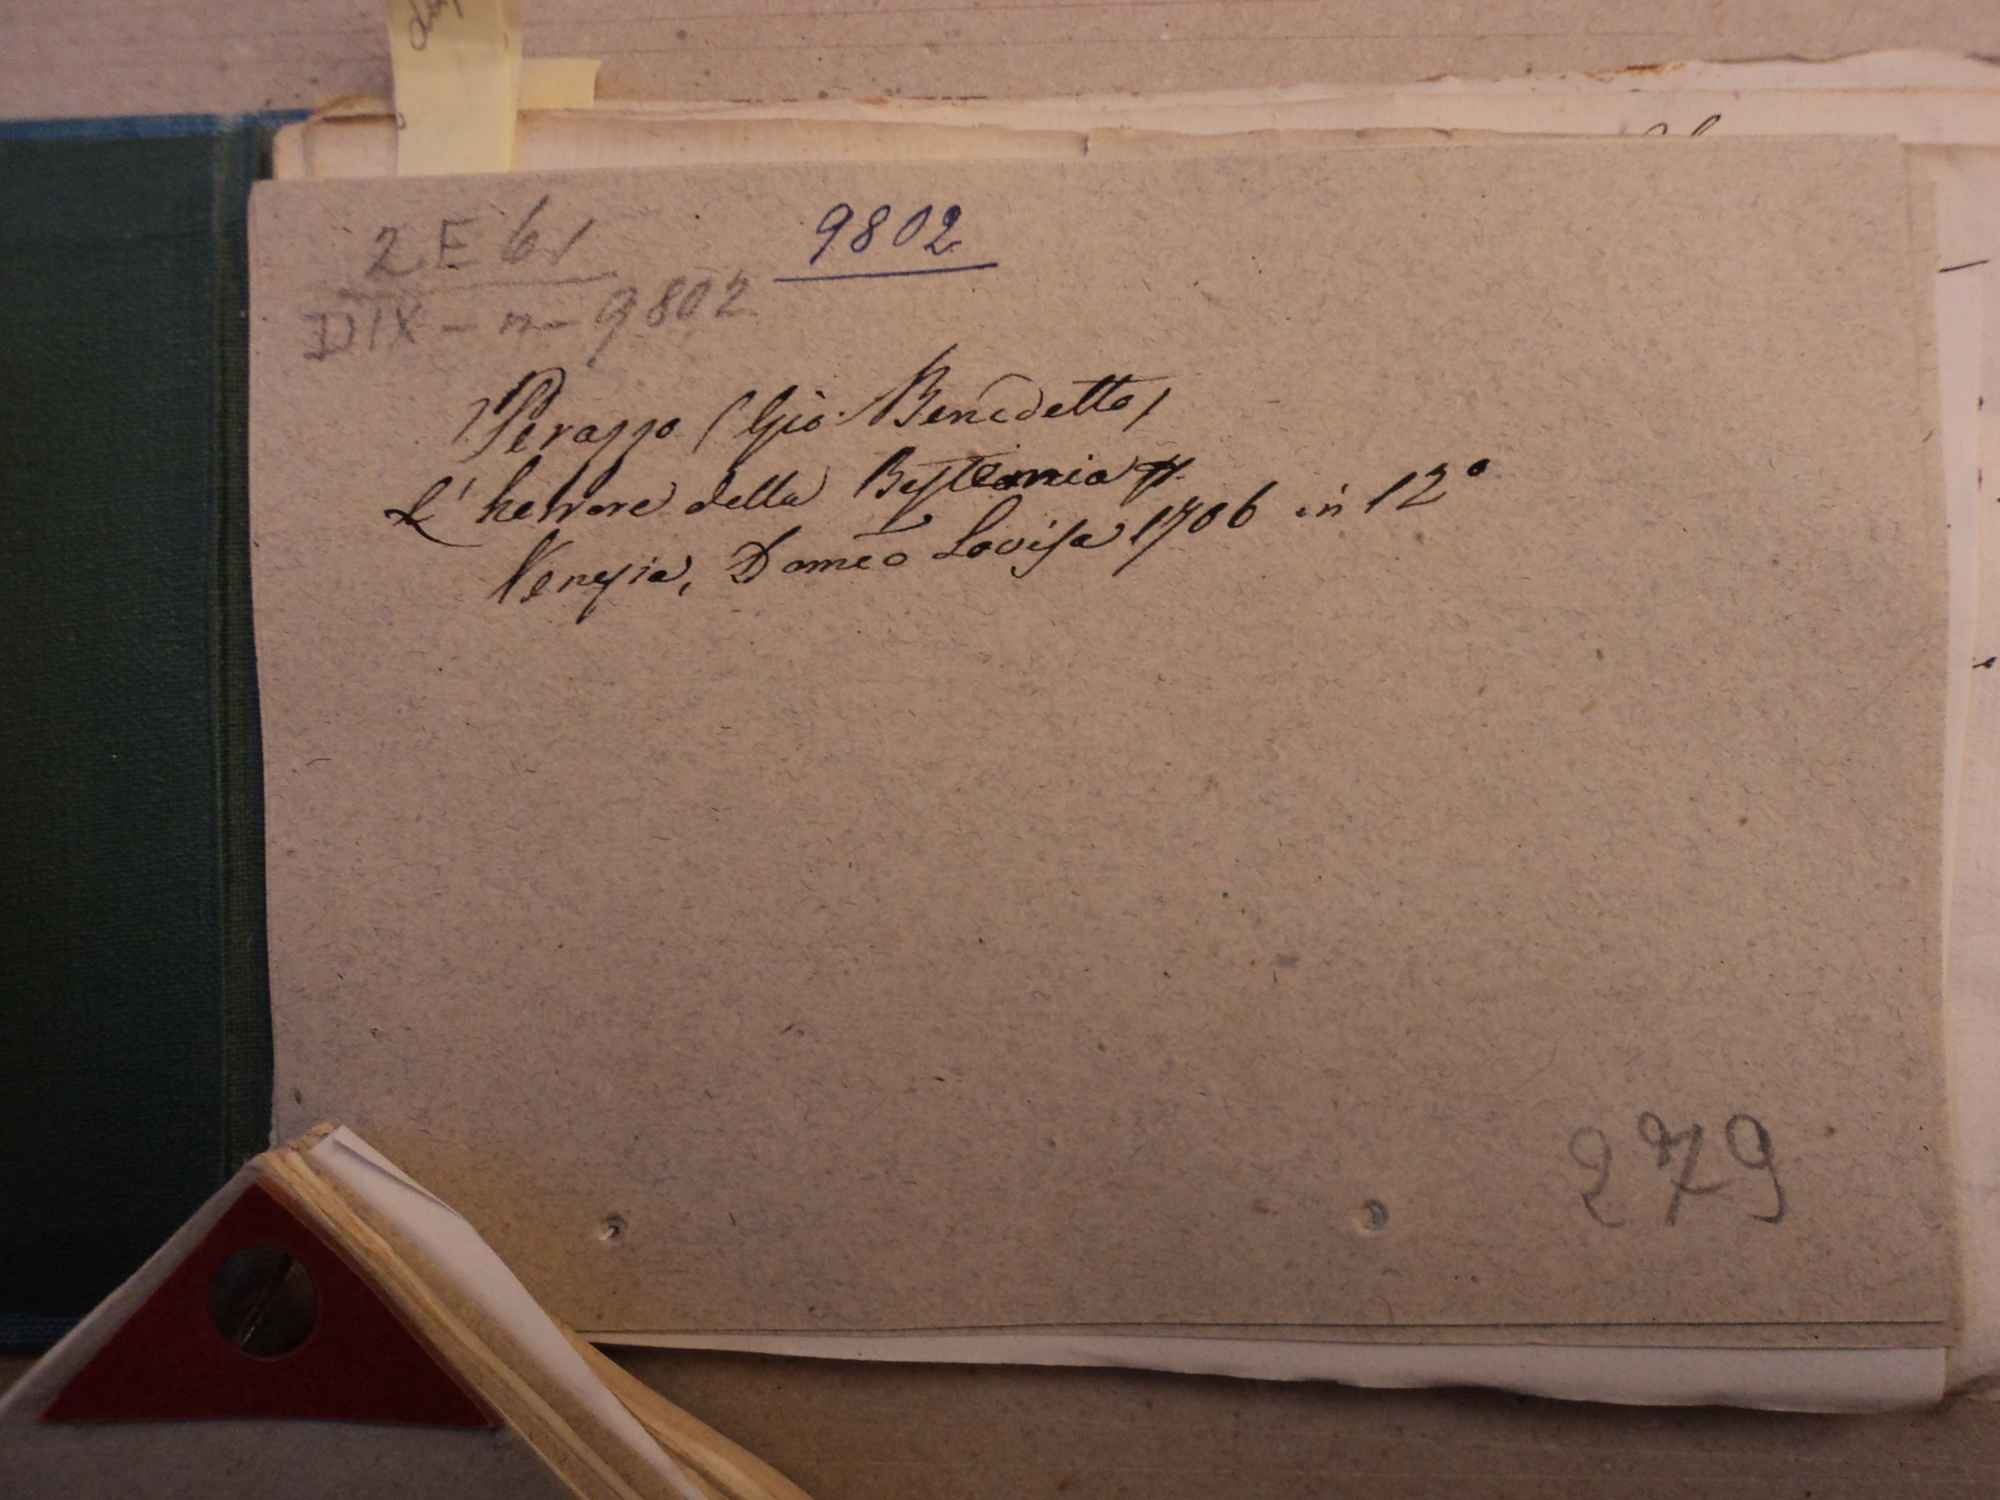 2 E 61
9802
DIX - n - 9802
Perazzo (Gio. Benedetto)
L'horrore della Bestemia
Venezia, Domco Lovisa 1706 in 12º
279